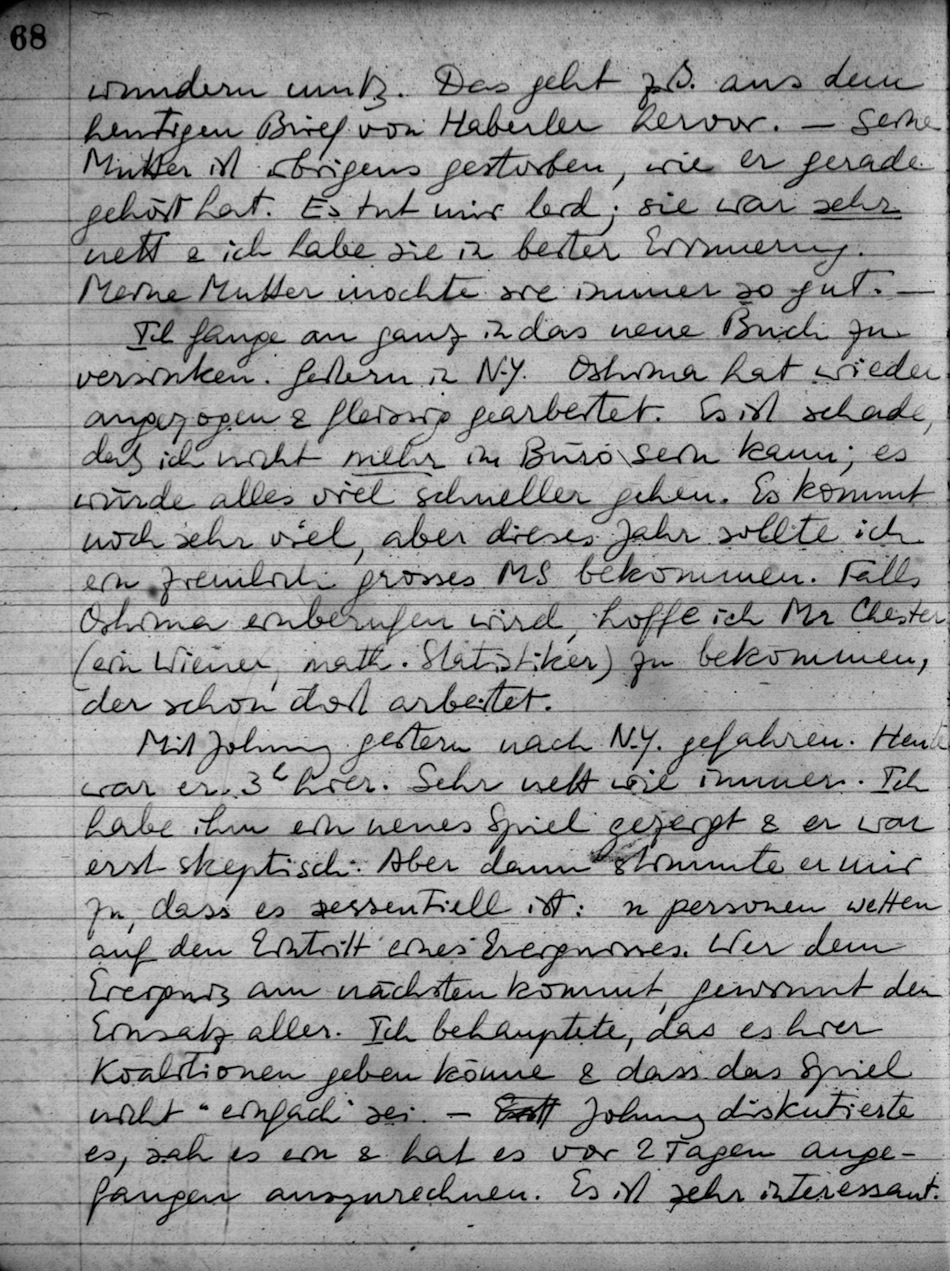 68
wundern muß. Das geht z.B. aus dem
heutigen Brief von Haberler hervor. — Seine
Mutter ist übrigens gestorben, wie er gerade
gehört hat. Es tut mir leid; sie war sehr
nett & ich habe sie in bester Erinnerung.
Meine Mutter mochte sie immer so gut. —
Ich fange an ganz in das neue Buch zu
versinken. Gestern in N.Y. Oshima hat wieder
angezogen & fleissig gearbeitet. Es ist schade,
daß ich nicht mehr im Büro sein kann; es
würde alles viel schneller gehen. Es kommt
noch sehr viel, aber dieses Jahr sollte ich
ein ziemlich grosses MS bekommen. Falls
Oshima einberufen wird, hoffe ich Mr Chester
(ein Wiener, math. Statistiker) zu bekommen,
der schon dort arbeitet.
Mit Johnny gestern nach N.Y. gefahren. Heute
war er 3h hier. Sehr nett wie immer. Ich
habe ihm ein neues Spiel gezeigt & er war
erst skeptisch. Aber dann stimmte er mir
zu, dass es essentiell ist: n personen wetten
auf den Eintritt eines Ereignisses. Wer dem
Ereigniß am nächsten kommt, gewinnt den
Einsatz aller. Ich behauptete, das es hier
Koalitionen geben könne & dass das Spiel
nicht "einfach" sei. — Johnny diskutierte
es, sah es ein & hat es vor 2 Tagen ange-
fangen auszurechnen. Es ist sehr interessant.